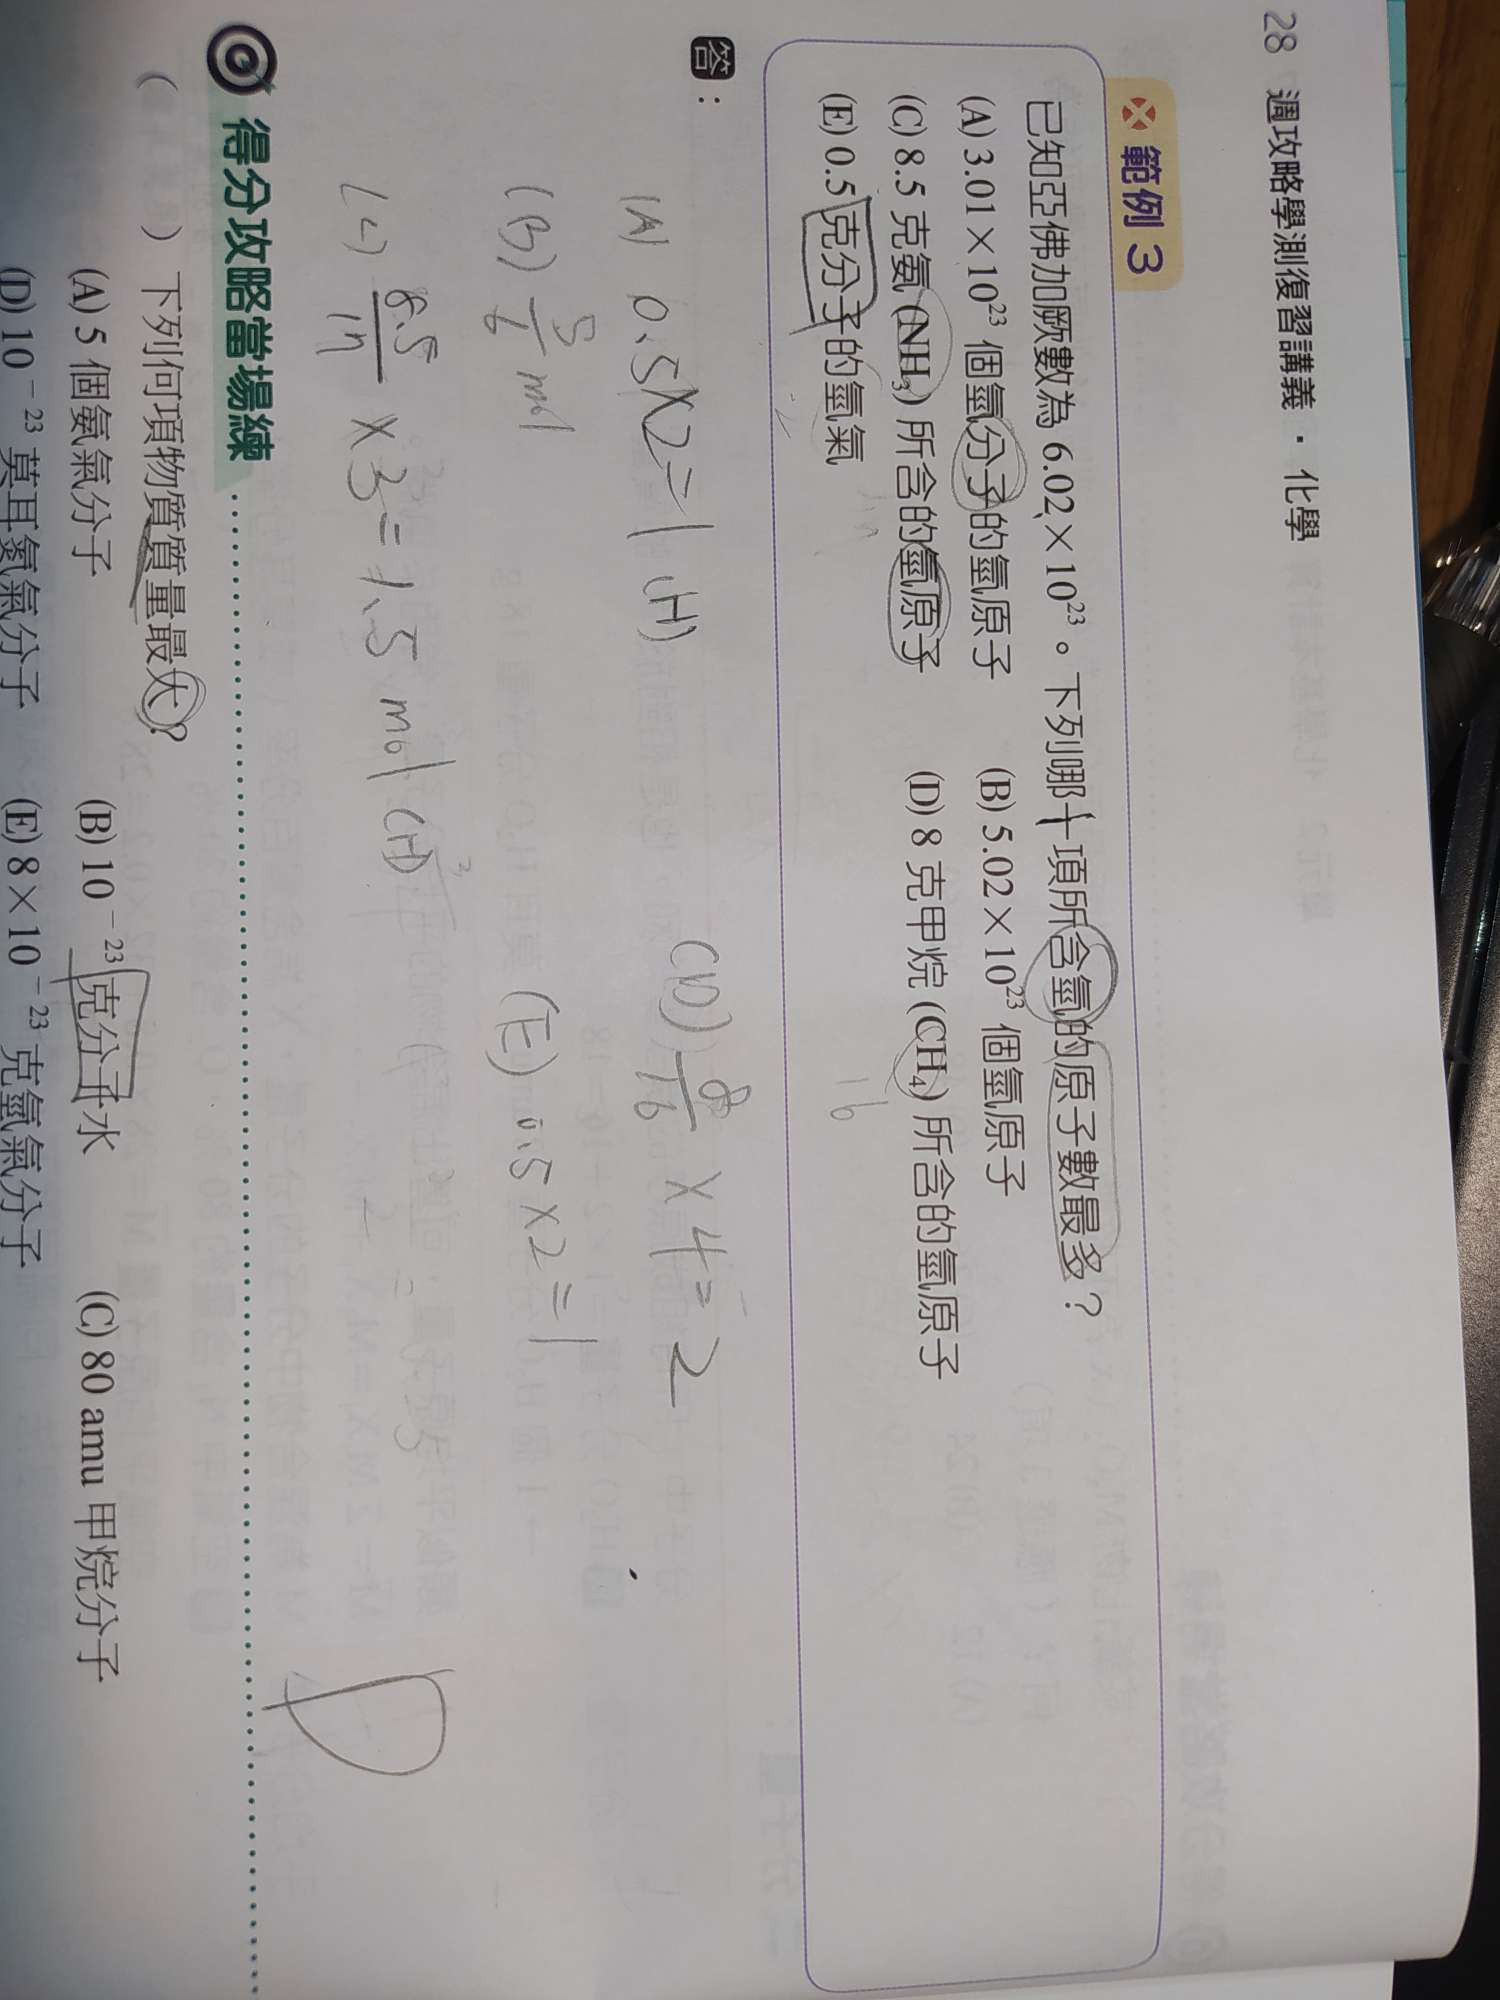 28 週攻略學測復習講義・化學
範例 3
已知亞佛加厥數為 6.02×10²³。下列哪一項所含氫的原子數最多？
(A) 3.01×10²³ 個氫分子的氫原子 (B) 5.02×10²³ 個氫原子
(C) 8.5 克氨 (NH₃) 所含的氫原子 (D) 8 克甲烷 (CH₄) 所含的氫原子
(E) 0.5 克分子的氫氣
16
答：
(A) 0.5×2=1 (H)
(D) 8/16 ×4=2
(B) 5/6 mol
(E) 0.5×2=1
(C) 8.5/17 ×3=1.5 mol (H)
D
得分攻略當場練
( ) 下列何項物質質量最大？
(A) 5 個氨氣分子 (B) 10⁻²³ 克分子水 (C) 80 amu 甲烷分子
(D) 10⁻²³ 莫耳氮氣分子 (E) 8×10⁻²³ 克氧氣分子